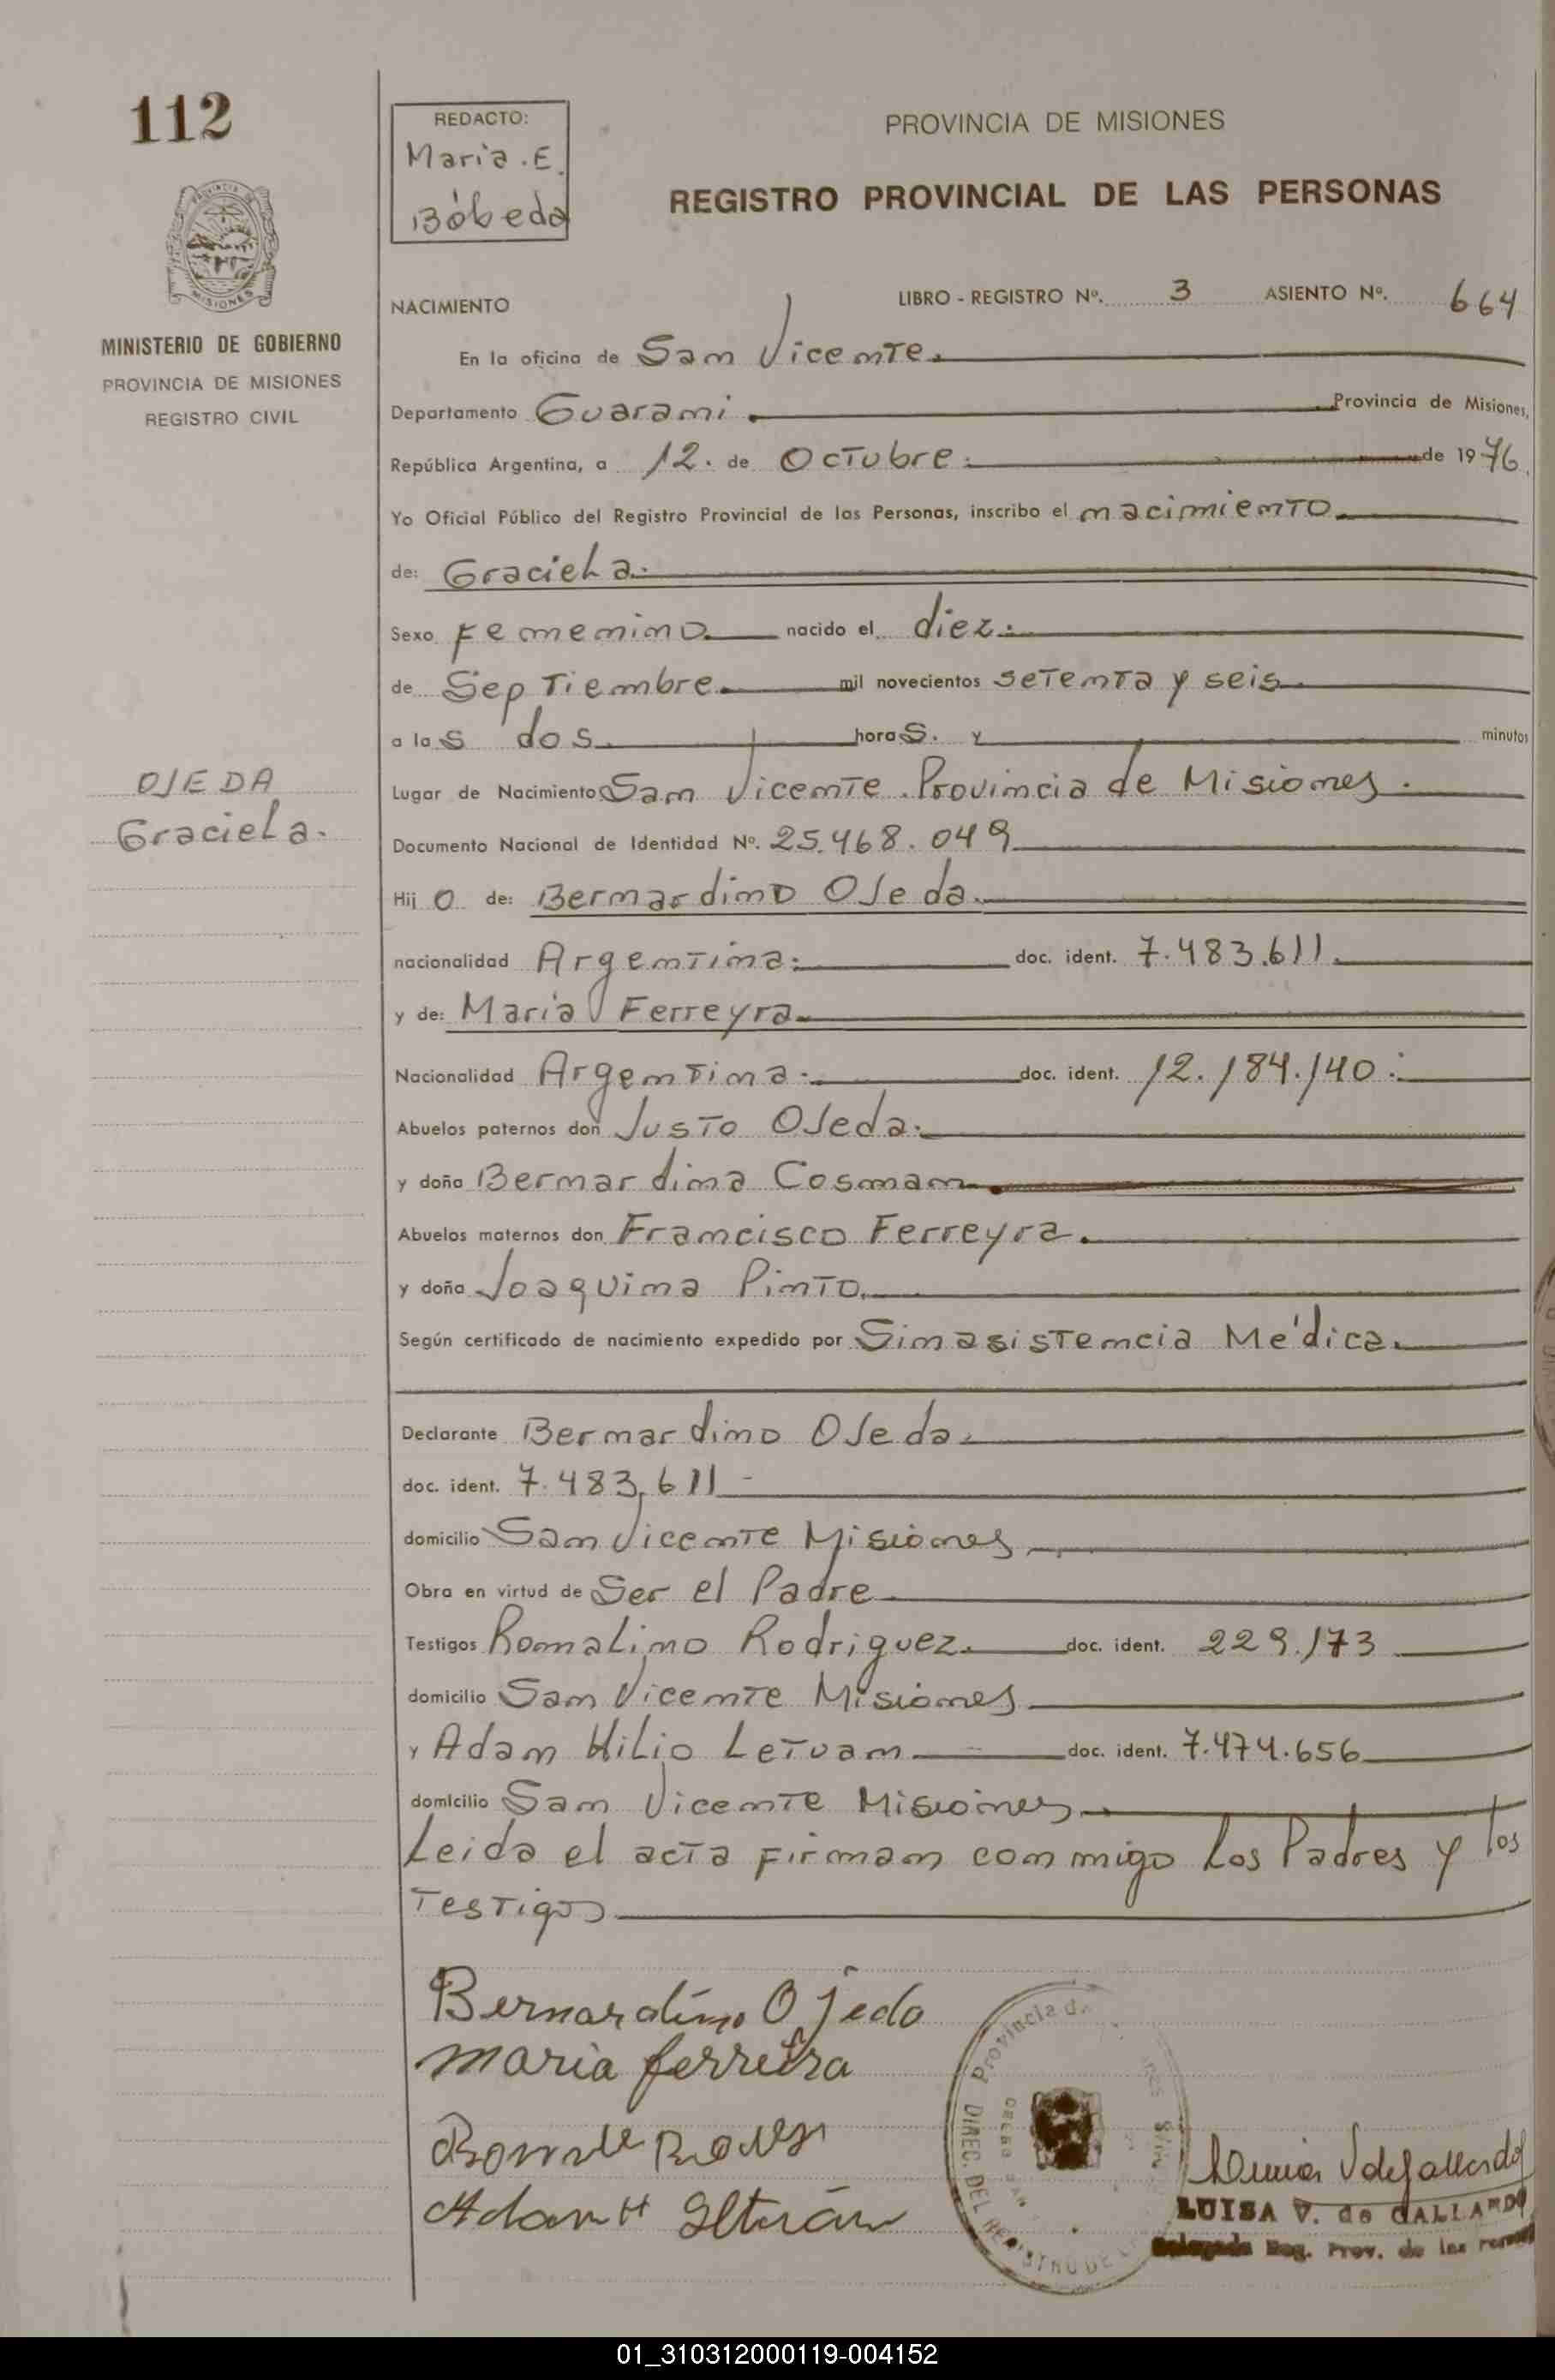 112
REDACTO:
Maria. E.
Bóbeda
PROVINCIA DE MISIONES
REGISTRO PROVINCIAL DE LAS PERSONAS
MISIONES
MINISTERIO DE GOBIERNO
PROVINCIA DE MISIONES
REGISTRO CIVIL
NACIMIENTO
LIBRO - REGISTRO Nº. 3 ASIENTO Nº. 664
En la oficina de San Vicente.
Departamento Guarani. Provincia de Misiones,
República Argentina, a 12. de Octubre. de 1976.
Yo Oficial Público del Registro Provincial de las Personas, inscribo el nacimiento.
de: Graciela.
Sexo Femenino. nacido el diez.
de Septiembre. mil novecientos setenta y seis.
a las dos. horas. y minutos
Lugar de Nacimiento San Vicente. Provincia de Misiones.
OJEDA
Graciela.
Documento Nacional de Identidad Nº. 25.468.049
Hijo de: Bernardino Ojeda.
nacionalidad Argentina. doc. ident. 7.483.611.
y de: Maria Ferreyra.
Nacionalidad Argentina. doc. ident. 12.184.140.
Abuelos paternos don Justo Ojeda.
y doña Bernardina Cosman.
Abuelos maternos don Francisco Ferreyra.
y doña Joaquina Pinto.
Según certificado de nacimiento expedido por Sin asistencia Médica.
Declarante Bernardino Ojeda.
doc. ident. 7.483.611 -
domicilio San Vicente Misiones
Obra en virtud de Ser el Padre
Testigos Romalino Rodriguez. doc. ident. 229.173
domicilio San Vicente Misiones
y Adan Hilio Letuan doc. ident. 7.474.656
domicilio San Vicente Misiones
Leida el acta firman conmigo los Padres y los
Testigos
Bernardino Ojeda
Maria ferreira
Adan H
Provincia de
DIREC. DEL REGISTRO DE
LUISA V. de GALLARDO
Delegada Reg. Prov. de las
01_310312000119-004152